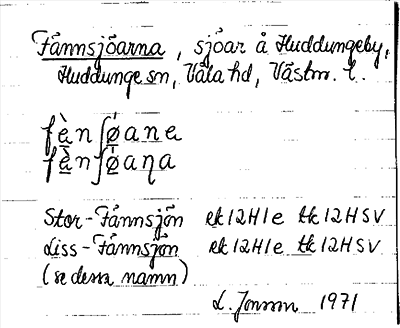 Fännsjöarna, sjöar å Huddungeby,
Huddunge sn, Våla hd, Västm. l.
fὲnʃǿane
fὲnʃǿaɳa
Stor-Fännsjön ek 12H1e tk 12H SV
Liss-Fännsjön ek 12H1e tk 12H SV
(se dessa namn)
L. Jonson 1971